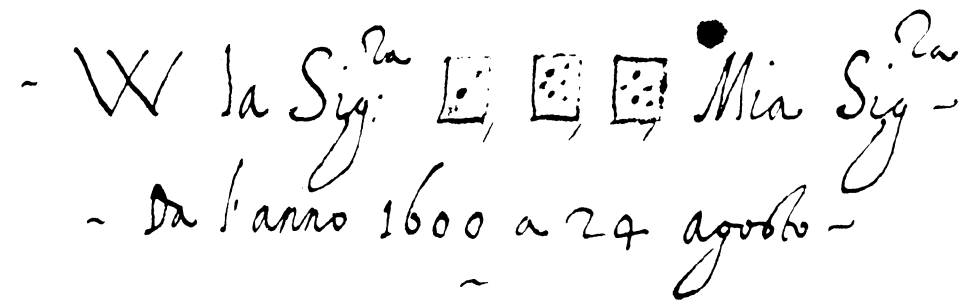 ~ W la Sig:ra ⚂, ⚅, ⚅, Mia Sigra ~
~ Da l'anno 1600 a 24 agosto ~
~